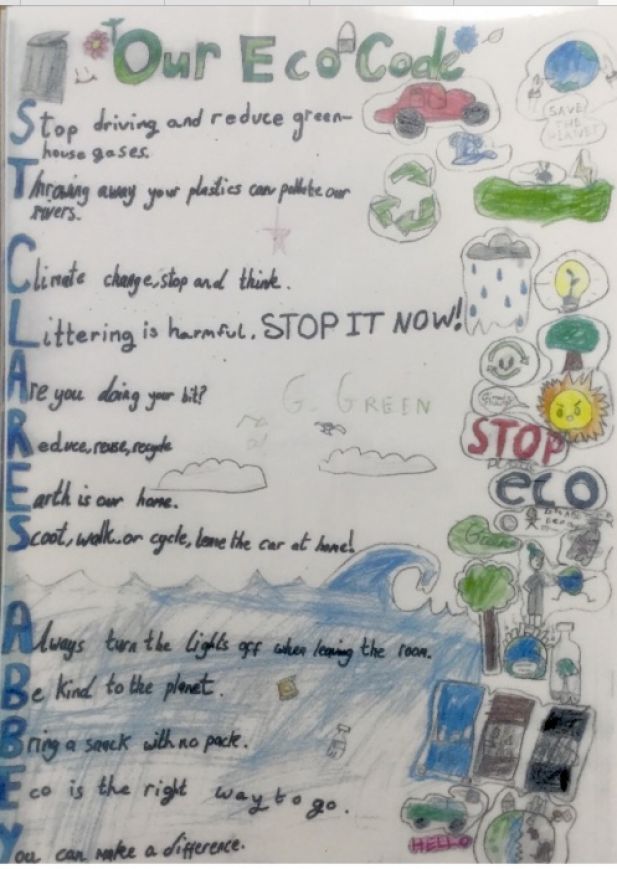 Our Eco Code
Stop driving and reduce green-
house gases.
SAVE
THE
PLANET
Throwing away your plastics can pollute our
rivers.
Climate change, stop and think.
Littering is harmful. STOP IT NOW!
Are you doing your bit?
G. GREEN
Reduce, reuse, recycle
STOP
plastic
Earth is our home.
eco
Scoot, walk or cycle, leave the car at home!
Green
Always turn the lights off when leaving the room.
Be kind to the planet.
Bring a snack with no pack.
Eco is the right way to go.
HELLO
You can make a difference.